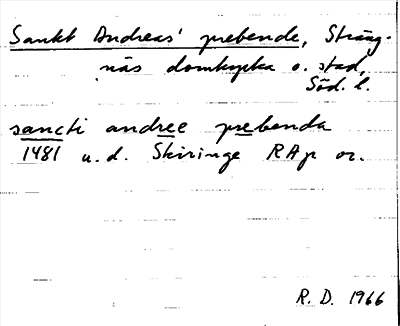 Sankt Andreas' prebende, Sträng-
näs domkyrka o. stad,
Söd. l.
sancti andree prebenda
1481 u.d. Skiringe RAp or.
R. D. 1966